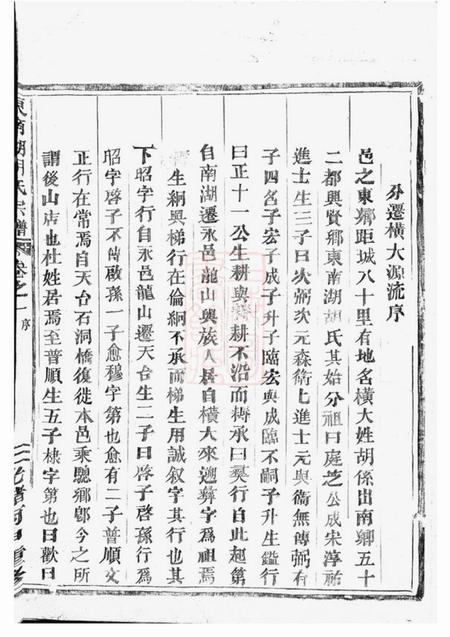 分遷橫大源流序
邑之東鄉距城八十里有地名橫大姓胡係出南鄉五十
二都興賢鄉東南湖胡氏其始分祖曰庭芝公成宋淳祐
進士生三子曰次弼次元森衛上進士元與衛無傳弼有
子四名子宏子成子升子臨宏與成臨不嗣子升生鑑行
曰正十一公生耕與耕不沿而耨承曰奭行自此起第
自南湖遷永邑龍山與族人居自橫大來遡彝字為祖焉
生綱與梯行在倫綱不承而梯生用誠叙字其行也其
下昭字行自永邑龍山遷天台生二子曰啓子啓孫行為
昭字啓子不傳啟孫一子愈穆字第也愈有二子普順文
正行在常焉自天台石洞橋復徙本邑乘驄鄉鄣今之所
謂後山店也杜姓居焉至普順生五子棣字第也曰歡曰
東南湖胡氏宗譜 卷之一 序
光緒丙申重修